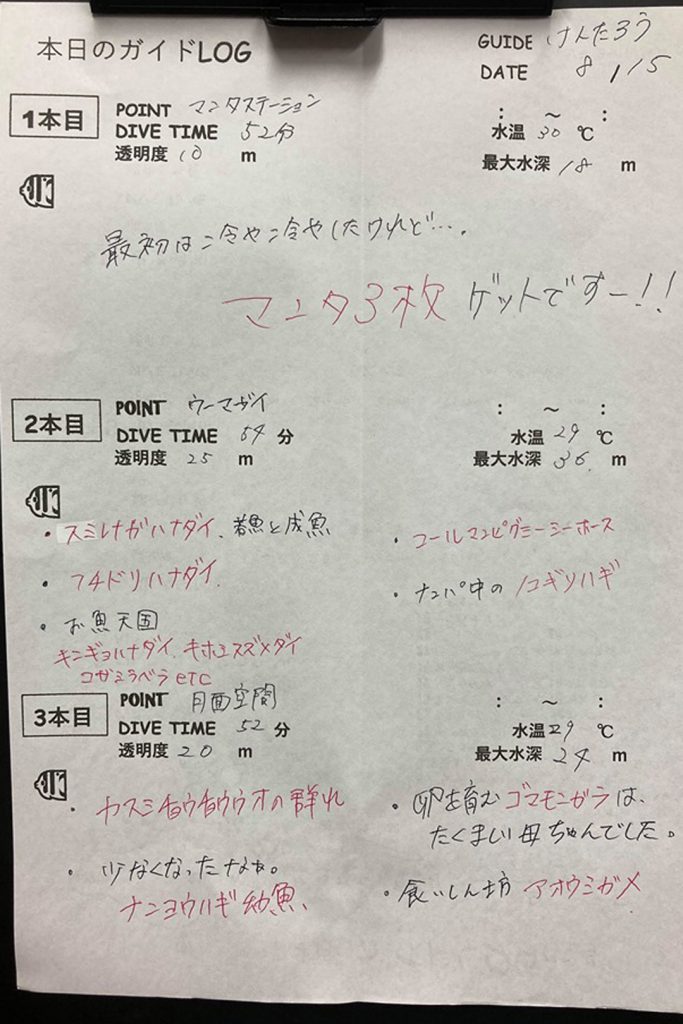 本日のガイドLOG
GUIDE けんたろう
DATE 8/15
1本目
POINT マンタステーション
DIVE TIME 52分
透明度 10 m
: ～ :
水温 30 ℃
最大水深 18 m
最初は冷や冷やしたけれど…。
マンタ3枚 ゲットですー!!
2本目
POINT ウーマガイ
DIVE TIME 54 分
透明度 25 m
: ～ :
水温 29 ℃
最大水深 36 m
・スミレナガハナダイ、若魚と成魚
・フチドリハナダイ
・お魚天国
キンギョハナダイ、キホシスズメダイ
コガシラベラ etc
・コールマンピグミーシーホース
・ナンパ中のノコギリハギ
3本目
POINT 月面空間
DIVE TIME 52 分
透明度 20 m
: ～ :
水温 29 ℃
最大水深 24 m
・カスミチョウチョウウオの群れ
・少なくなったなぁ。
ナンヨウハギ幼魚、
・卵を育むゴマモンガラは、
たくましい母ちゃんでした。
・食いしん坊 アオウミガメ